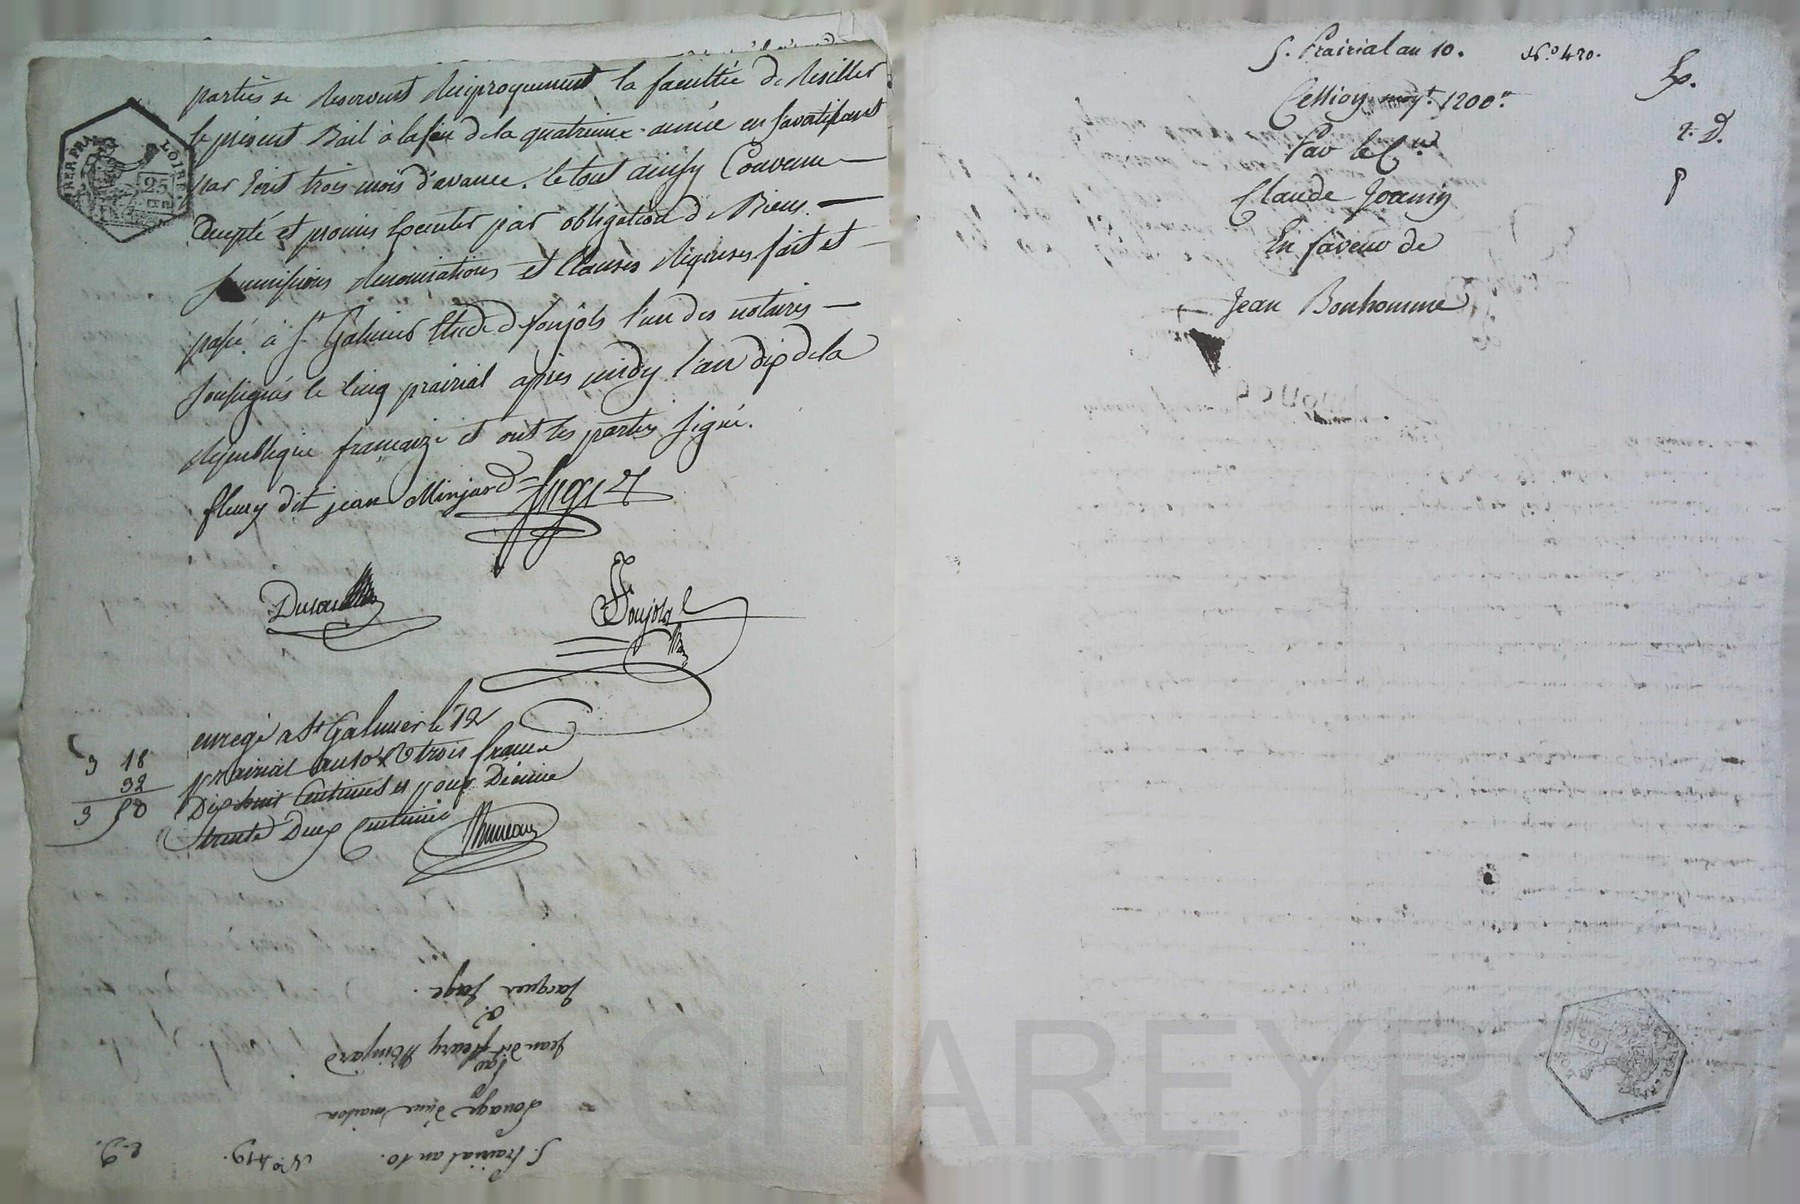 parties se reservent reciproquement la facultée de resillier
le présent Bail à la fin de la quatrieme année en s'avertissant
par écrit trois mois d'avance. le tout ainsy Convenu
accepté et promis executer par obligation de Biens.
soumissions renonciations et Clauses requises fait et
passé à St Galmier Etude de foujols l'un des notaires
soussignés le cinq prairial apres midy l'an dix de la
republique française et ont les parties signé.
fleury dit jean Minjard
Foujols
enregé a St Galmier le 12
prairial an 10 Rd trois francs
Dix huit Centimes et pour Décime
trente Deux Centimes
3 18
32
3 50
LOIRE
25
5. Prairial an 10. No. 419. 2. D.
Louage d'une maison
Par
Jean dit fleury Minjard
à
Jacques Jagé.
5. Prairial an 10. No. 420.
Ex.
Cession moyt. 1200tt
2. D.
Par le Cen
Claude Joanin
En faveur de
Jean Bonhomme
CHAREYRON